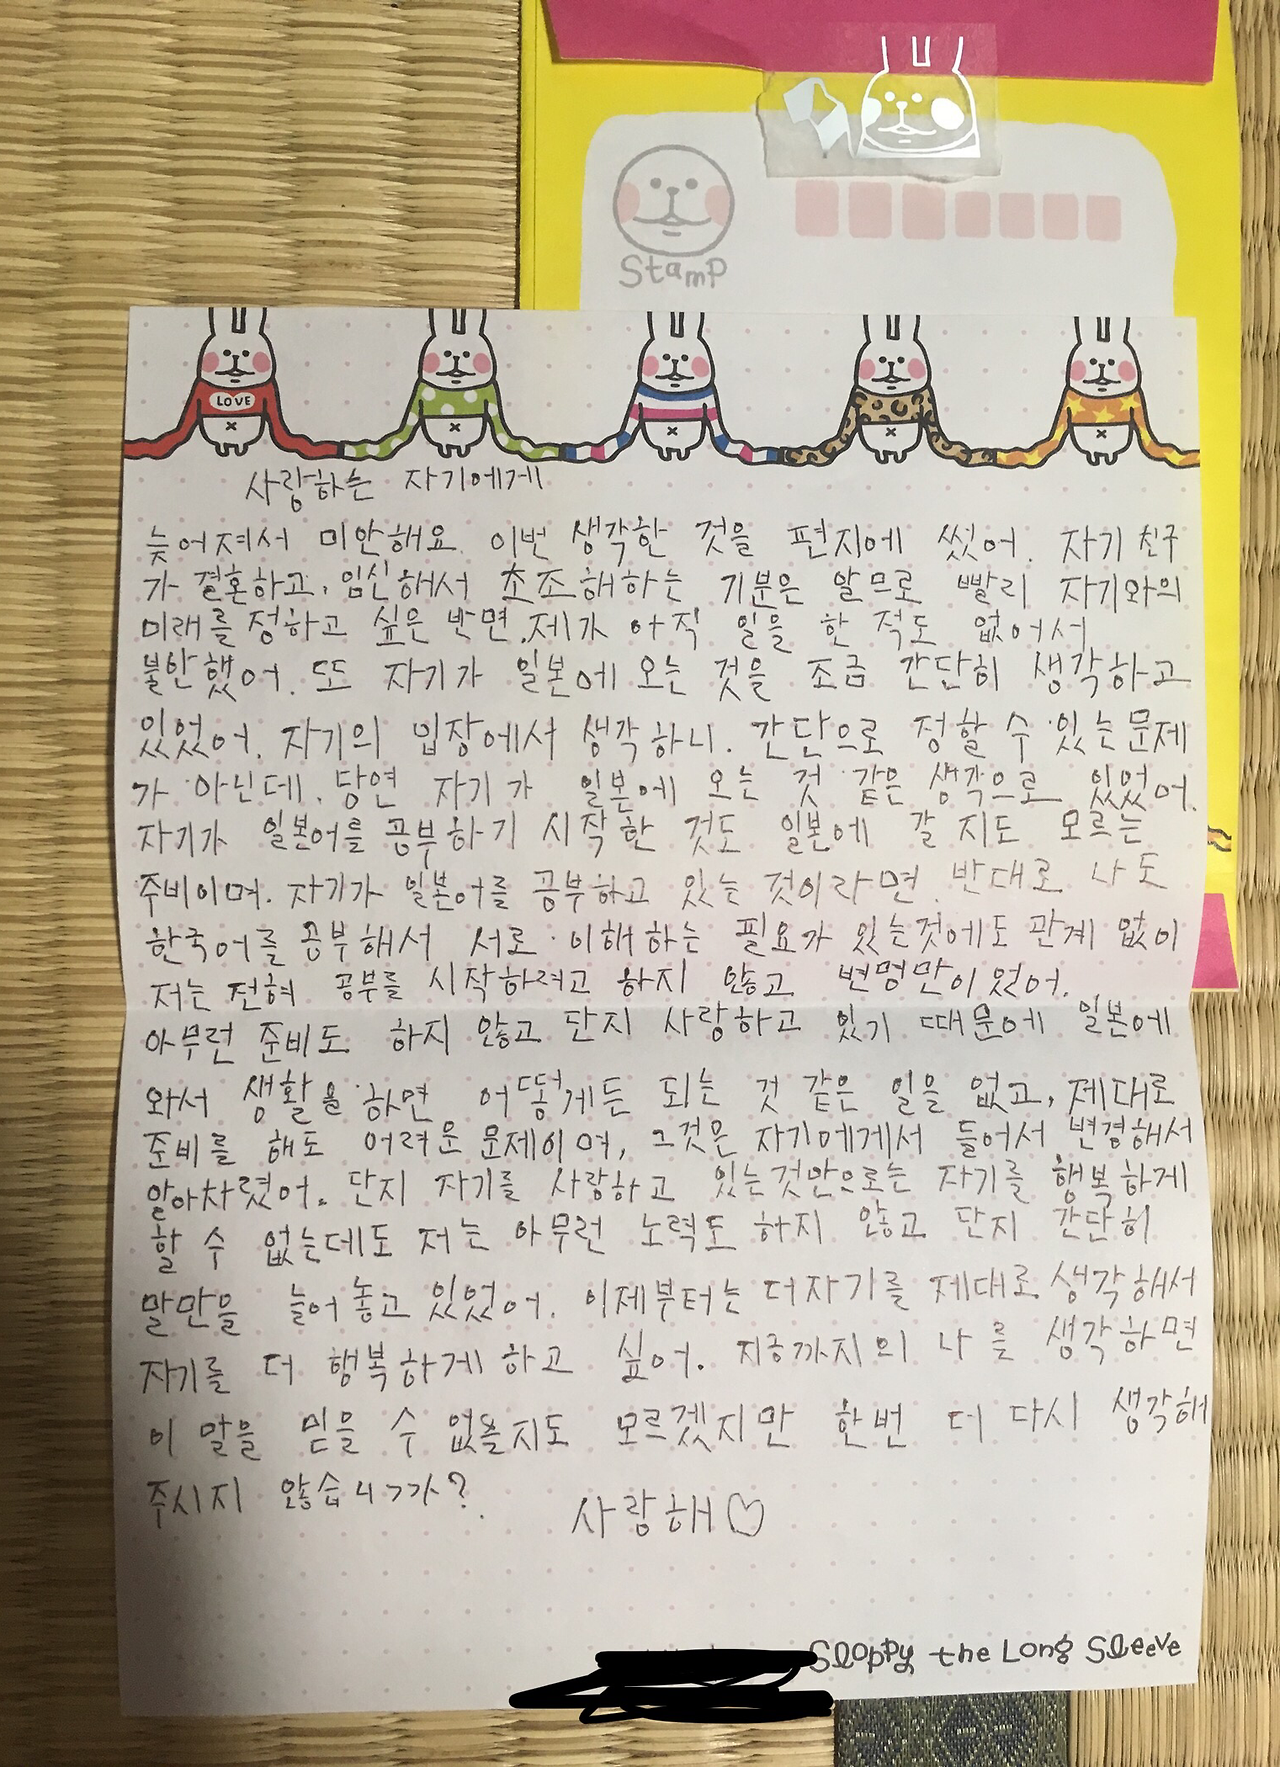 Stamp
LOVE
사랑하는 자기에게
늦어져서 미안해요. 이번 생각한 것을 편지에 썼어. 자기 친구
가 결혼하고, 임신해서 초조해하는 기분은 알므로 빨리 자기와의
미래를 정하고 싶은 반면, 제가 아직 일을 한 적도 없어서
불안했어. 또 자기가 일본에 오는 것을 조금 간단히 생각하고
있었어. 자기의 입장에서 생각하니, 간단으로 정할 수 있는 문제
가 아닌데, 당연 자기가 일본에 오는 것 같은 생각으로 있었어.
자기가 일본어를 공부하기 시작한 것도 일본에 갈 지도 모르는
준비이며, 자기가 일본어를 공부하고 있는 것이라면, 반대로 나도
한국어를 공부해서 서로 이해하는 필요가 있는것에도 관계 없이
저는 전혀 공부를 시작하려고 하지 않고 변명만이었어.
아무런 준비도 하지 않고 단지 사랑하고 있기 때문에 일본에
와서 생활을 하면 어떻게든 되는 것 같은 일을 없고, 제대로
준비를 해도 어려운 문제이며, 그것은 자기에게서 들어서 변경해서
알아차렸어. 단지 자기를 사랑하고 있는것만으로는 자기를 행복하게
할 수 없는데도 저는 아무런 노력도 하지 않고 단지 간단히
말만을 늘어놓고 있었어. 이제부터는 더자기를 제대로 생각해서
자기를 더 행복하게 하고 싶어. 지금까지의 나를 생각하면
이 말을 믿을 수 없을지도 모르겠지만 한번 더 다시 생각해
주시지 않습니까?
사랑해♡
Sloppy the Long Sleeve